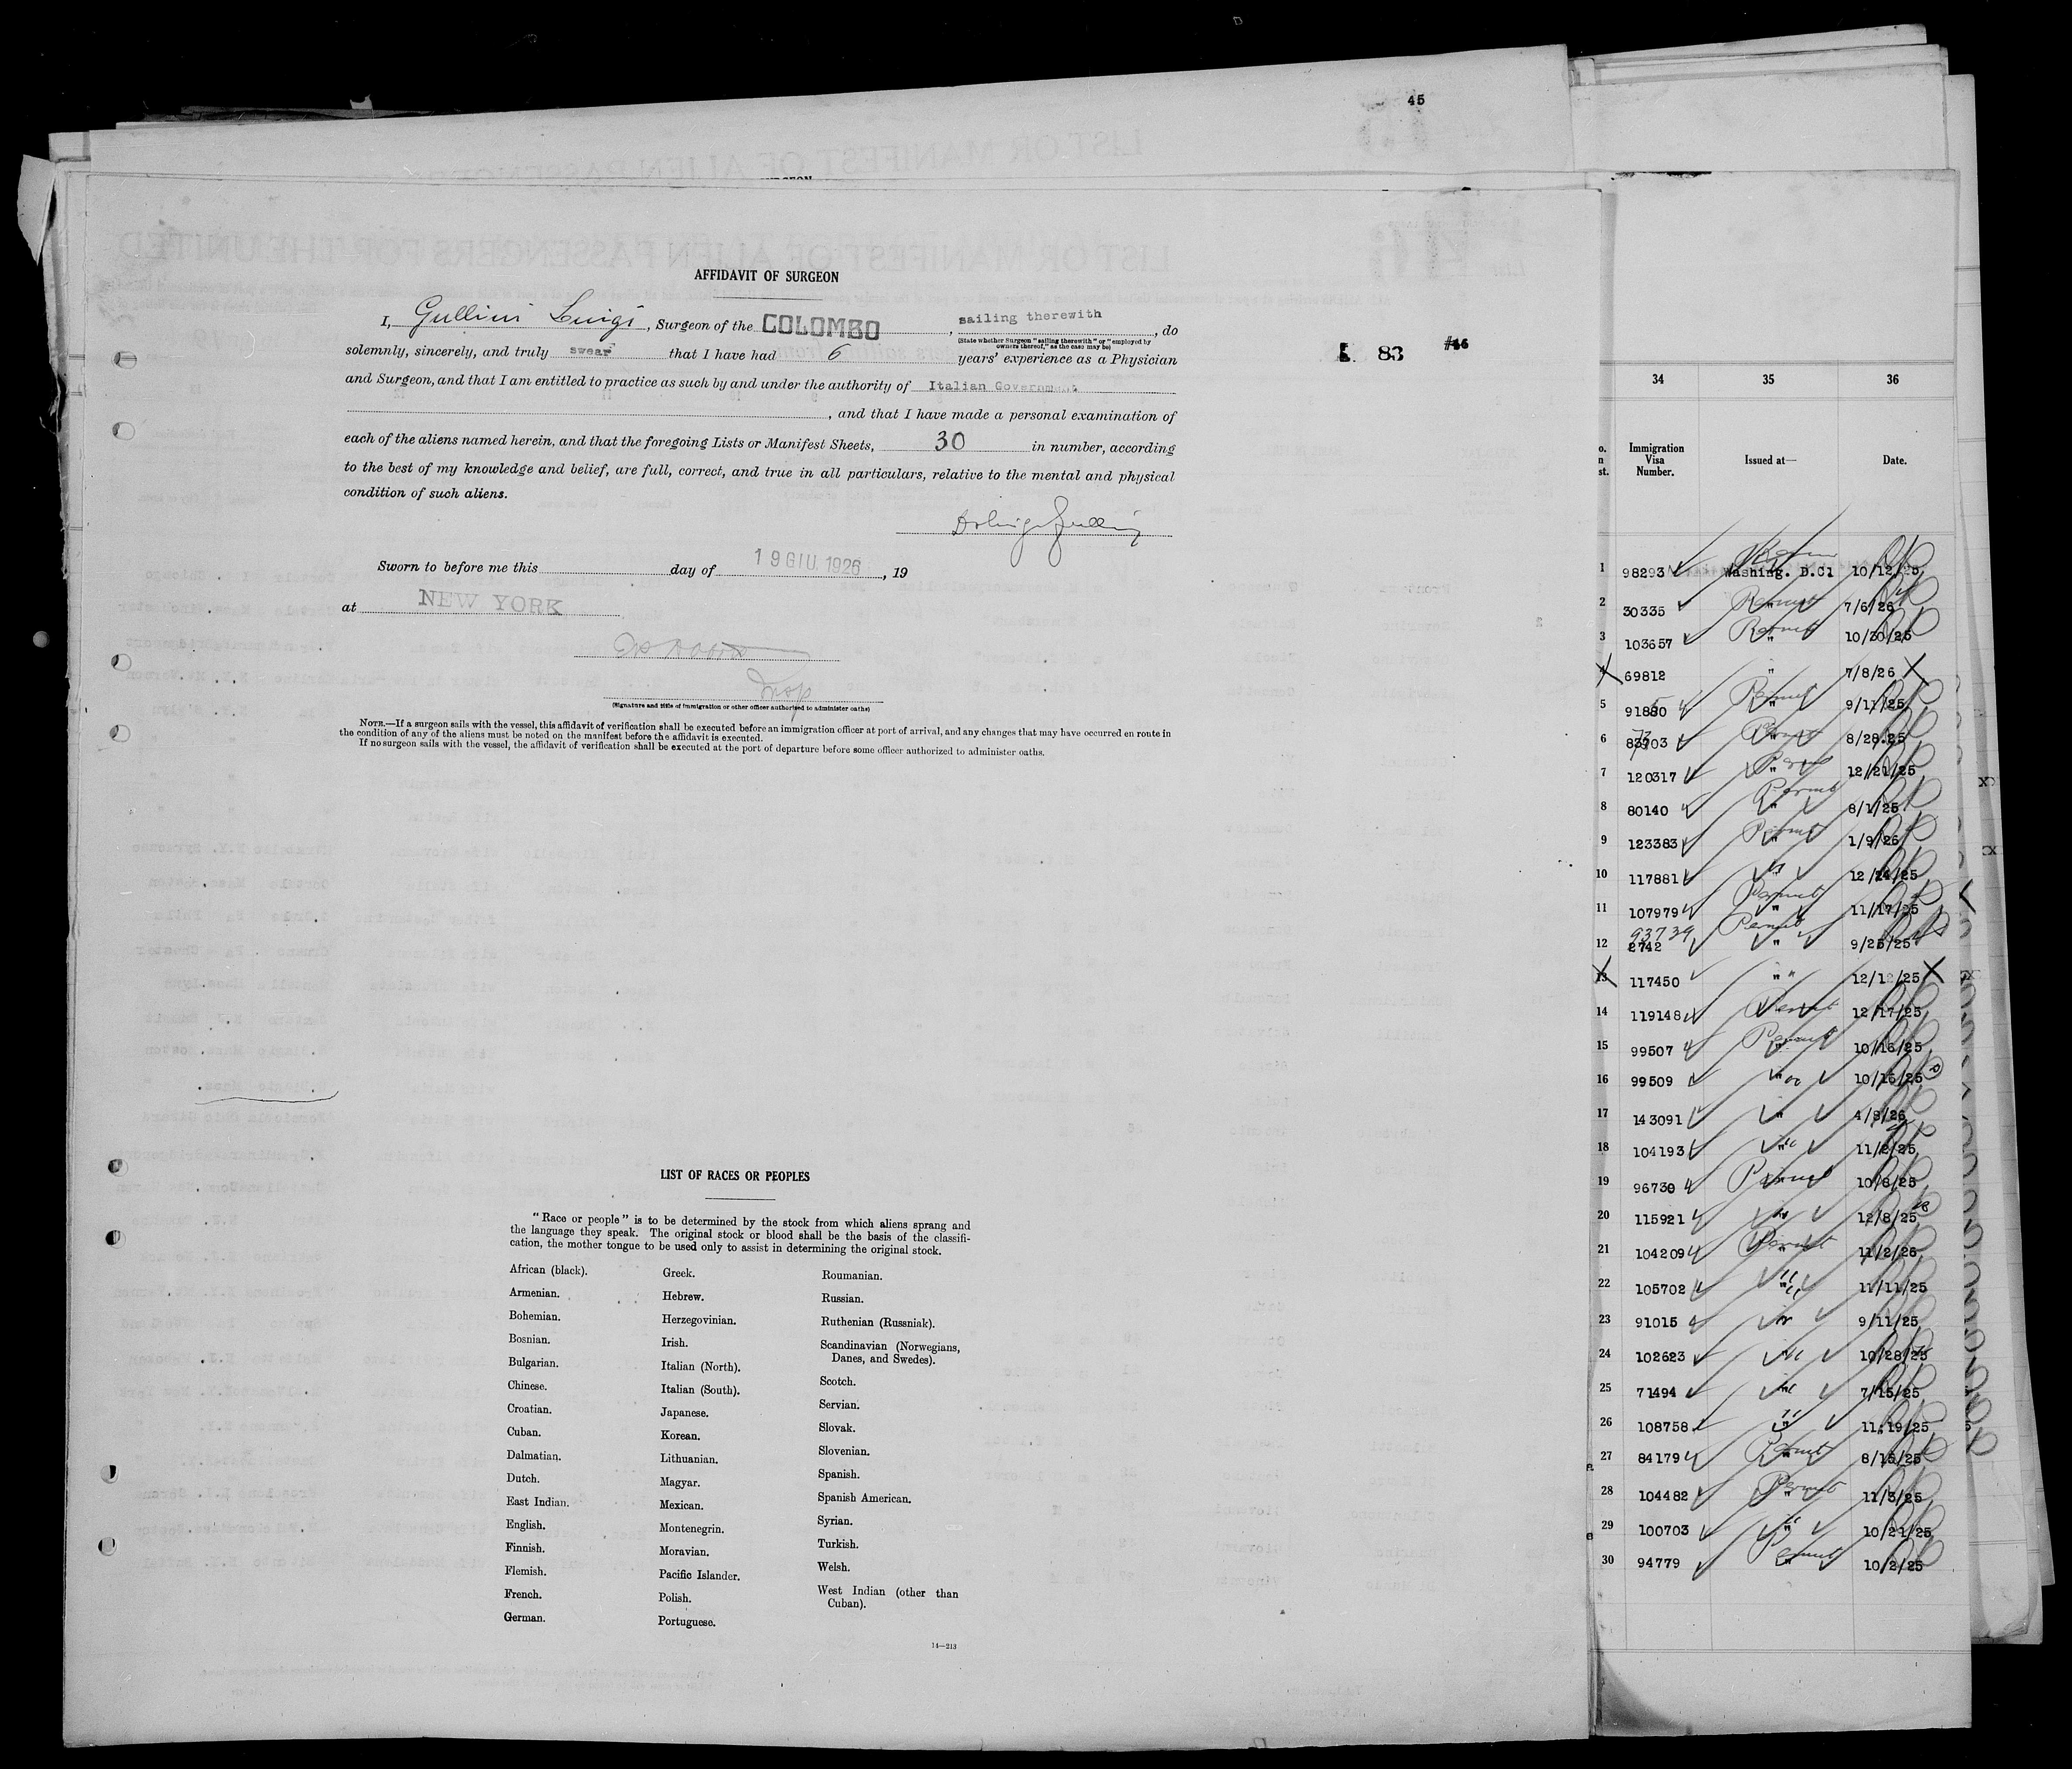 45
AFFIDAVIT OF SURGEON
I, Gullini Luigi, Surgeon of the COLOMBO, sailing therewith, do
(State whether Surgeon "sailing therewith" or "employed by
owners thereof," as the case may be)
solemnly, sincerely, and truly swear that I have had 6 years' experience as a Physician
and Surgeon, and that I am entitled to practice as such by and under the authority of Italian Government
, and that I have made a personal examination of
each of the aliens named herein, and that the foregoing Lists or Manifest Sheets, 30 in number, according
to the best of my knowledge and belief, are full, correct, and true in all particulars, relative to the mental and physical
condition of such aliens.
Sworn to before me this day of 19 GIU. 1926, 19
at NEW YORK
Insp
(Signature and title of immigration or other officer authorized to administer oaths)
NOTE.—If a surgeon sails with the vessel, this affidavit of verification shall be executed before an immigration officer at port of arrival, and any changes that may have occurred en route in
the condition of any of the aliens must be noted on the manifest before the affidavit is executed.
If no surgeon sails with the vessel, the affidavit of verification shall be executed at the port of departure before some officer authorized to administer oaths.
83
LIST OF RACES OR PEOPLES
"Race or people" is to be determined by the stock from which aliens sprang and
the language they speak. The original stock or blood shall be the basis of the classifi-
cation, the mother tongue to be used only to assist in determining the original stock.
African (black).
Armenian.
Bohemian.
Bosnian.
Bulgarian.
Chinese.
Croatian.
Cuban.
Dalmatian.
Dutch.
East Indian.
English.
Finnish.
Flemish.
French.
German.
Greek.
Hebrew.
Herzegovinian.
Irish.
Italian (North).
Italian (South).
Japanese.
Korean.
Lithuanian.
Magyar.
Mexican.
Montenegrin.
Moravian.
Pacific Islander.
Polish.
Portuguese.
Roumanian.
Russian.
Ruthenian (Russniak).
Scandinavian (Norwegians,
Danes, and Swedes).
Scotch.
Servian.
Slovak.
Slovenian.
Spanish.
Spanish American.
Syrian.
Turkish.
Welsh.
West Indian (other than
Cuban).
14—213
34 35 36
Immigration
Visa
Number. Issued at— Date.
1 98293 Washing. D.C. 10/12/25
2 30335 Permit " 7/6/26
3 103657 Permit " 10/30/25
4 69812 " 7/8/26
5 91880 Permit " 9/11/25
6 83703 Permit " 8/28.25
7 120317 Permit " 12/21/25
8 80140 Permit " 8/1/25
9 123383 Permit " 1/9/26
10 117881 " 12/24/25
11 107979 Permit " 11/17/25
12 93739 2742 Permit " 9/25/25
13 117450 " 12/12/25
14 119148 Permit 12/17/25
15 99507 Permit " 10/16/25
16 99509 " 10/16/25
17 143091 " 4/8/26
18 104193 " 11/2/25
19 96730 Permit 10/8/25
20 115921 " 12/8/25
21 104209 Permit " 11/2/26
22 105702 " 11/11/25
23 91015 " 9/11/25
24 102623 " 10/28/25
25 71494 " 7/15/25
26 108758 " 11.19/25
27 84179 Permit " 8/15/25
28 104482 Permit " 11/3/25
29 100703 " 10/21/25
30 94779 Permit " 10/2/25